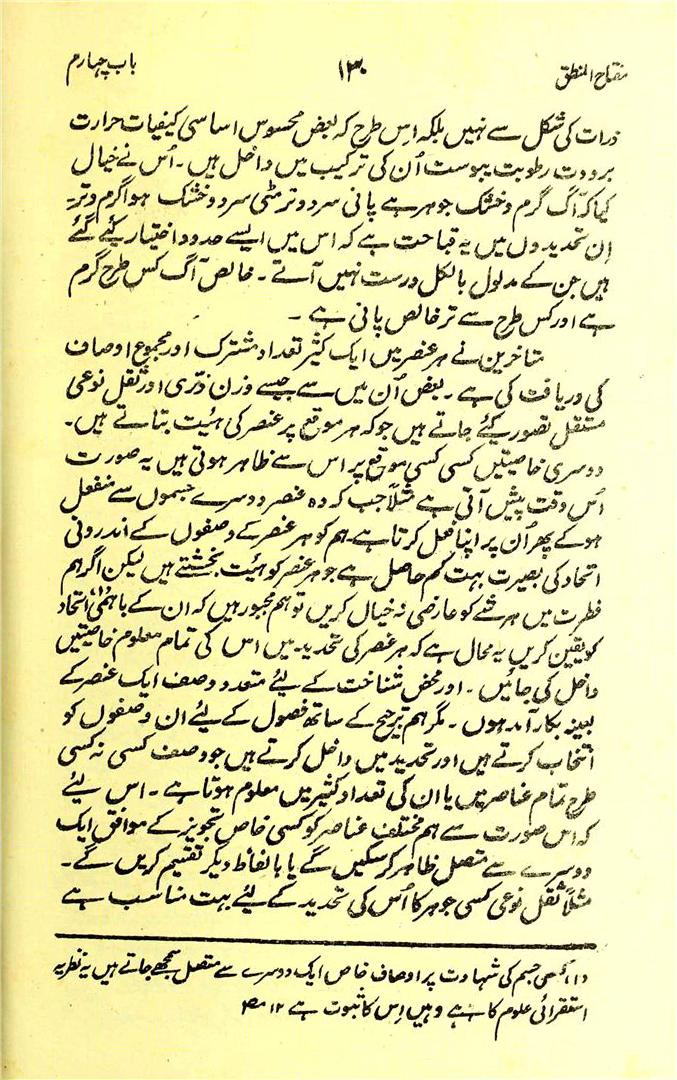 مفتاح المنطق ۱۳۰ باب چہارم
ذرات کی شکل سے نہیں بلکہ اِس طرح کہ بعض محسوس اساسی کیفیات حرارت
برودت رطوبت یبوست اُن کی ترکیب میں داخل ہیں۔ اُس نے خیال
کیا کہ آگ گرم و خشک جوہر ہے پانی سرد و تر مٹی سرد و خشک ہوا گرم و تر۔
اِن تحدیدوں میں یہ قباحت ہے کہ اس میں ایسے حدود اختیار کیے گئے
ہیں جن کے مدلول بالکل درست نہیں آتے۔ خالص آگ کس طرح گرم
ہے اور کس طرح سے تر خالص پانی ہے۔
متاخرین نے ہر عنصر میں ایک کثیر تعداد مشترک اور مجموع اوصاف
کی دریافت کی ہے۔ بعض اُن میں سے جیسے وزن ذرّی اور ثقل نوعی
مستقل تصور کیے جاتے ہیں جو کہ ہر موقع پر عنصر کی ہیئت بتاتے ہیں۔
دوسری خاصیتیں کسی کسی موقع پر اس سے ظاہر ہوتی ہیں یہ صورت
اُس وقت پیش آتی ہے مثلاً جب کہ وہ عنصر دوسرے جسموں سے منفعل
ہو کے پھر اُن پر اپنا فعل کرتا ہے۔ ہم کو ہر عنصر کے وصفوں کے اندرونی
اتحاد کی بصیرت بہت کم حاصل ہے جو ہر عنصر کو ہیئت بخشتے ہیں لیکن اگر ہم
فطرت میں ہر شے کو عارضی نہ خیال کریں تو ہم مجبور ہیں کہ ان کے باہمی اتحاد (۱)
کو یقین کریں یہ محال ہے کہ ہر عنصر کی تحدید میں اس کی تمام معلوم خاصیتیں
داخل کی جائیں۔ اور محض شناخت کے لیے متعدد وصف ایک عنصر کے
بعینہ بکار آمد ہوں۔ مگر ہم ترجیح کے ساتھ فصول کے لیے ان وصفوں کو
انتخاب کرتے ہیں اور تحدید میں داخل کرتے ہیں جو وصف کسی نہ کسی
طرح تمام عناصر میں یا ان کی تعداد کثیر میں معلوم ہوتا ہے۔ اس لیے
کہ اس صورت سے ہم مختلف عناصر کو کسی خاص تجویز کے موافق ایک
دوسرے سے متصل ظاہر کر سکیں گے یا بالفاظ دیگر تقسیم کریں گے۔
مثلاً ثقل نوعی کسی جوہر کا اُس کی تحدید کے لیے بہت مناسب ہے
(۱) کسی جسم کی شہادت پر اوصاف خاص ایک دوسرے سے متصل سمجھے جاتے ہیں یہ نظریہ
استقرائی علوم کا ہے وہیں اِس کا ثبوت ہے ۱۲ مص